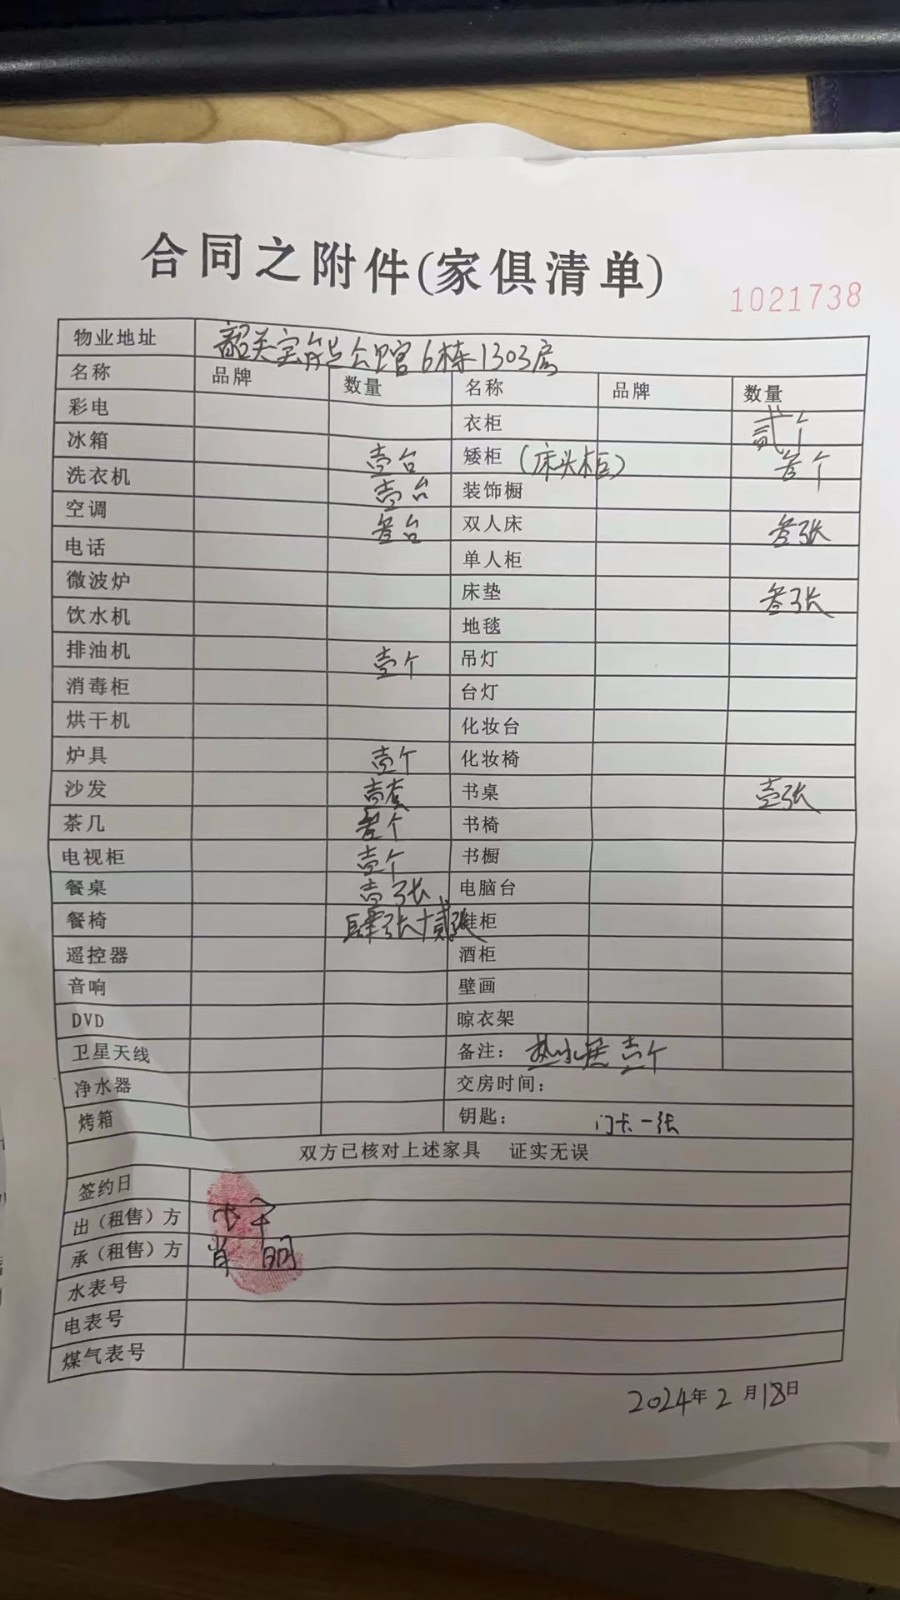 合同之附件(家俱清单)
1021738
物业地址 韶关宝能公馆6栋1303房
名称 品牌 数量 名称 品牌 数量
彩电 衣柜 贰个
冰箱 壹台 矮柜 (床头柜) 叁个
洗衣机 壹台 装饰橱
空调 叁台 双人床 叁张
电话 单人柜
微波炉 床垫 叁张
饮水机 地毯
排油机 壹个 吊灯
消毒柜 台灯
烘干机 化妆台
炉具 壹个 化妆椅
沙发 壹套 书桌 壹张
茶几 个 书椅
电视柜 壹个 书橱
餐桌 壹张 电脑台
餐椅 肆张+贰张 鞋柜
遥控器 酒柜
音响 壁画
DVD 晾衣架
卫星天线 备注: 热水器 壹个
净水器 交房时间:
烤箱 钥匙: 门卡一张
双方已核对上述家具 证实无误
签约日
出(租售)方
承(租售)方 肖 明
水表号
电表号
煤气表号
2024年2月18日